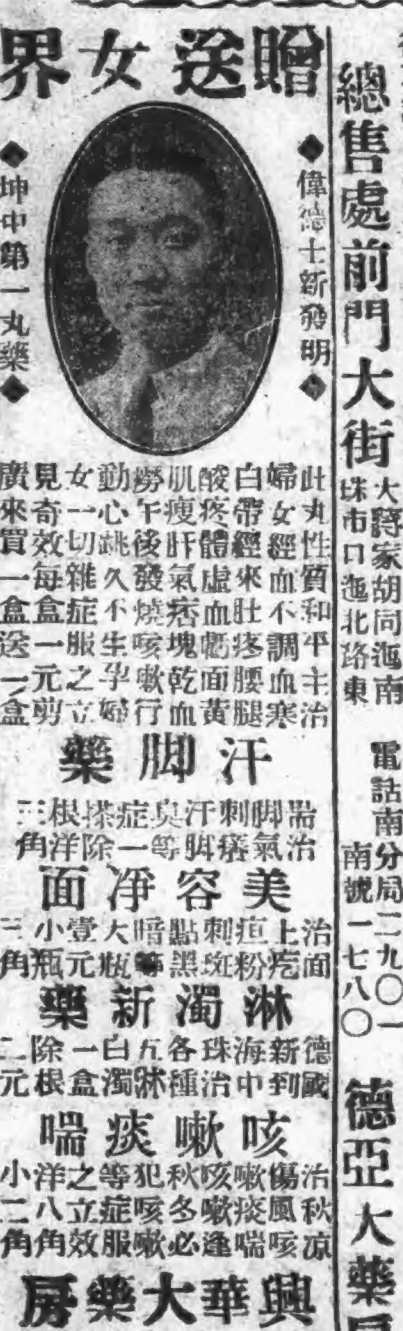 總售處前門大街
大蔣家胡同迤南
珠市口迤北路東
電話南分局二九〇一
南號一七八〇
德亞大藥
贈送女界
◆偉德士新發明◆
◆坤中第一丸藥◆
此丸性質和平主治
婦女經血不調血寒
白帶經來肚疼腰腿
酸疼體虛血虧面黃
肌瘦肝氣痞塊乾血
癆午後發燒咳嗽行
動心跳久不生孕婦
女一切雜症服之立
見奇效每盒一元剪
廣來買一盒送一盒
汗脚藥
耑治
脚氣
刺癢
汗脚
臭等
症一
搽除
根洋
三角
美容淨面
治面
上疙
疸粉
刺斑
點黑
暗等
大瓶
壹元
小瓶
三角
淋濁新藥
德國
新到
海中
珠治
各種
五淋
白濁
一盒
除根
二元
咳嗽痰喘
治秋凉
傷風咳
嗽痰喘
咳嗽逢
秋冬必
犯咳嗽
等症服
之立效
洋八角
小二角
興華大藥房